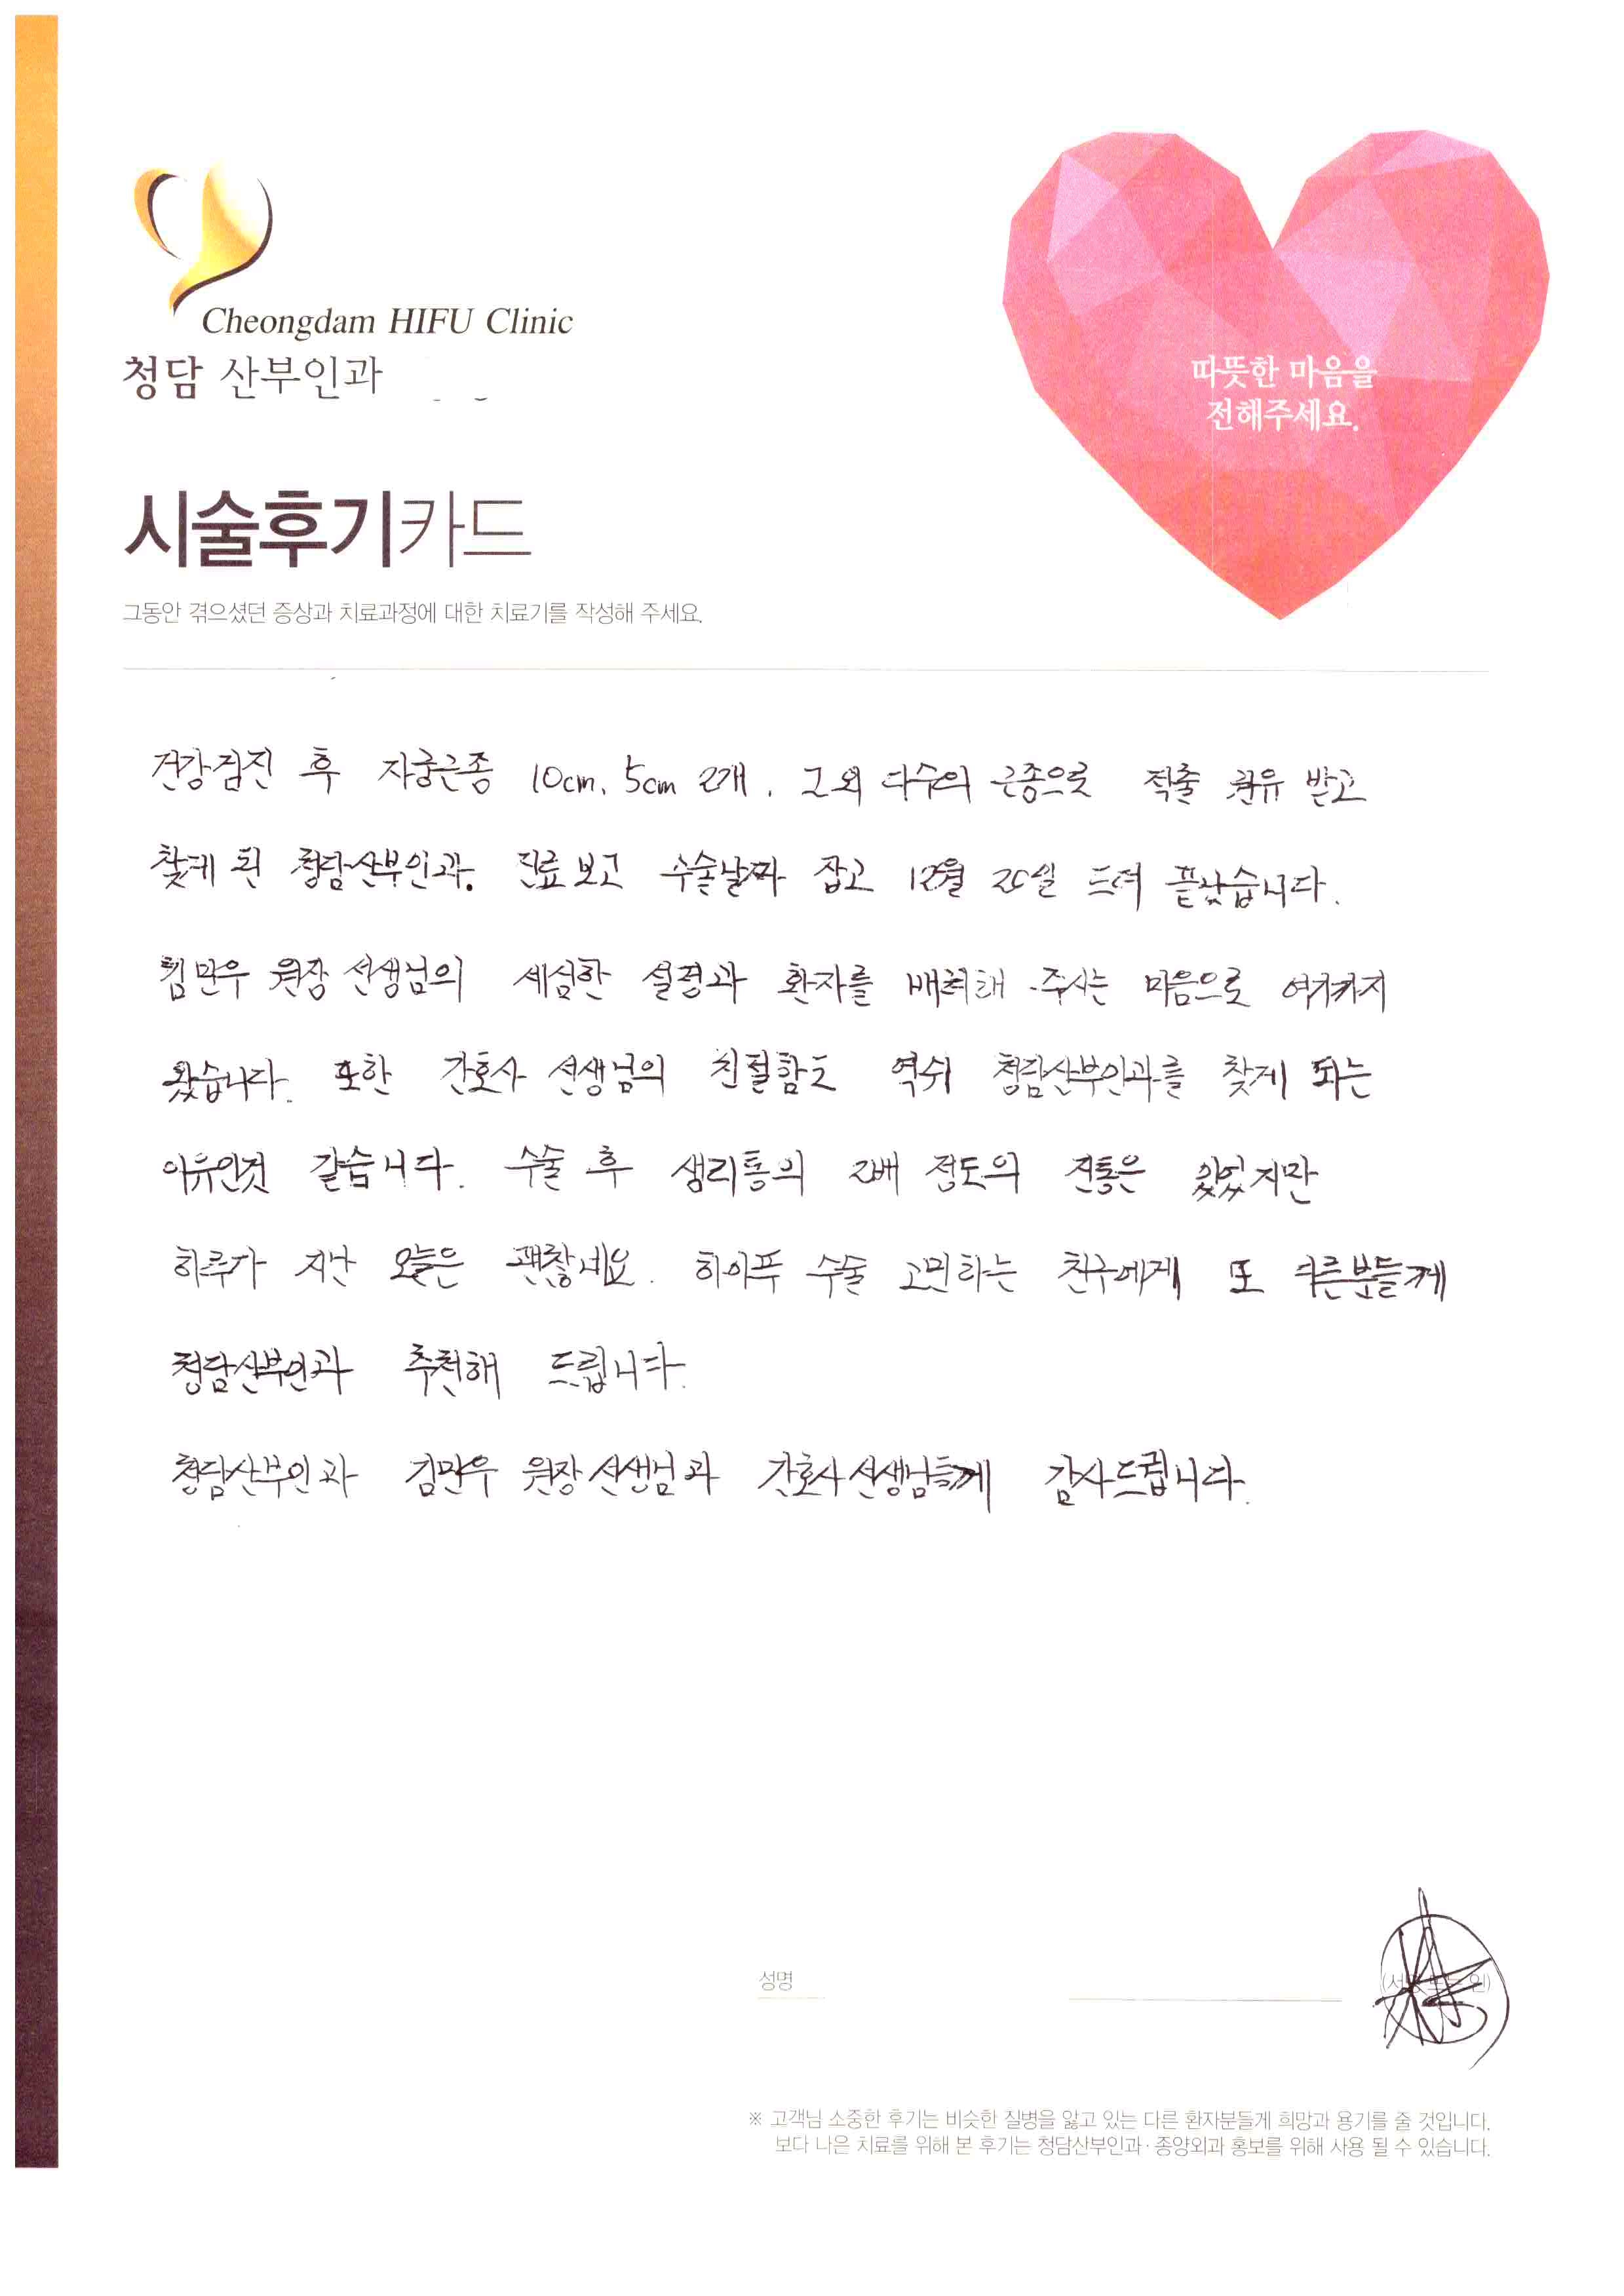 Cheongdam HIFU Clinic
청담 산부인과
따뜻한 마음을
전해주세요.
시술후기카드
그동안 겪으셨던 증상과 치료과정에 대한 치료기를 작성해 주세요.
건강검진 후 자궁근종 10cm, 5cm 2개, 그외 다수의 근종으로 적출 권유 받고
찾게 된 청담산부인과. 진료 보고 수술날짜 잡고 12월 20일 드뎌 끝났습니다.
김민우 원장 선생님의 세심한 설명과 환자를 배려해 주시는 마음으로 여기까지
왔습니다. 또한 간호사 선생님의 친절함도 역쉬 청담산부인과를 찾게 되는
이유인것 같습니다. 수술 후 생리통의 2배 정도의 진통은 있었지만
하루가 지난 오늘은 괜찮네요. 하이푸 수술 고민하는 친구에게 또 다른분들께
청담산부인과 추천해 드립니다.
청담산부인과 김민우 원장선생님과 간호사선생님들께 감사드립니다.
성명
(서명 또는 인)
※ 고객님 소중한 후기는 비슷한 질병을 앓고 있는 다른 환자분들게 희망과 용기를 줄 것입니다.
보다 나은 치료를 위해 본 후기는 청담산부인과·종양외과 홍보를 위해 사용 될 수 있습니다.